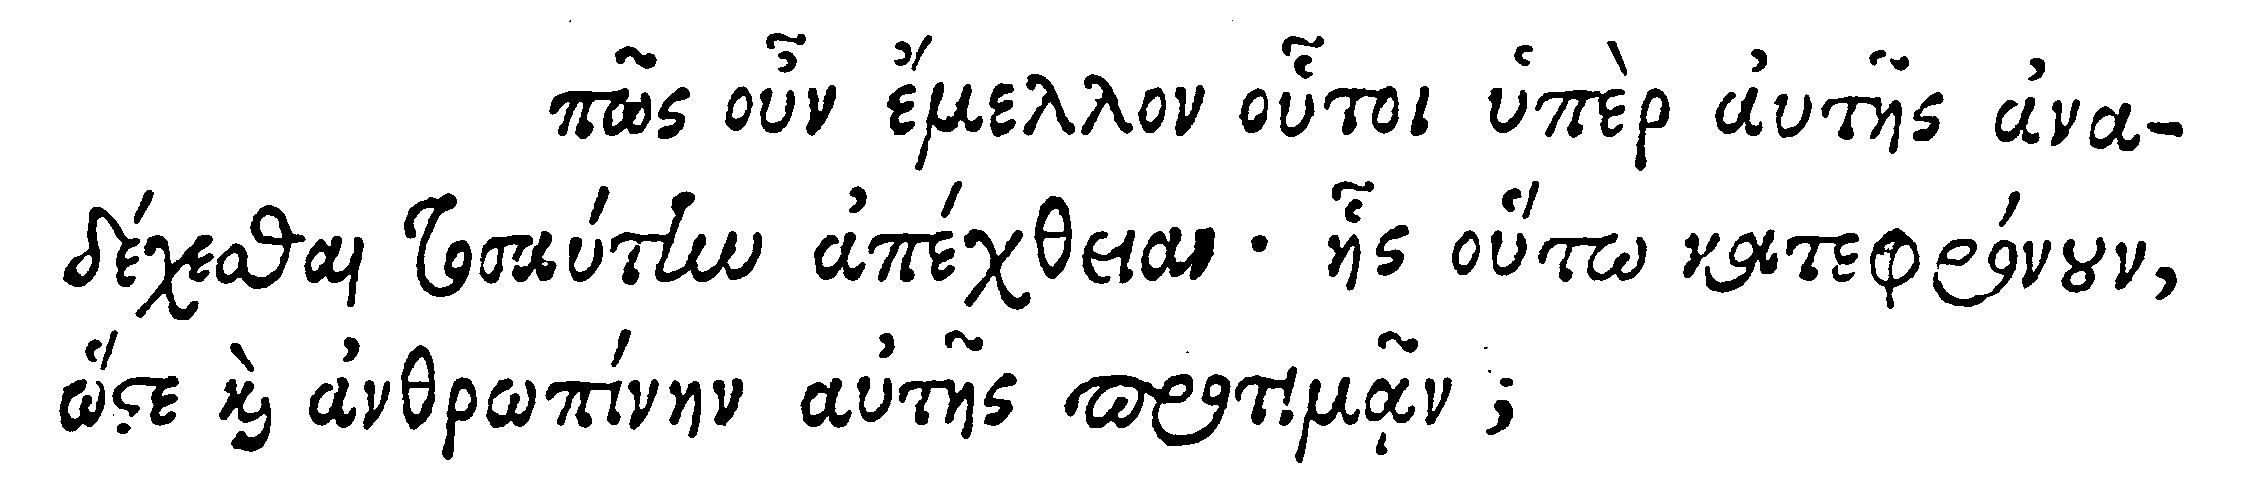 πῶς οὖν ἔμελλον οὗτοι ὑπὲρ ἀυτῆς ἀνα-
δέχεσθαι τοσαύτίω ἀπέχθειαν · ἧς οὕτω κατεφρόνουν,
ὥστε καὶ ἀνθρωπίνην αὐτῆς προτιμᾷν ;